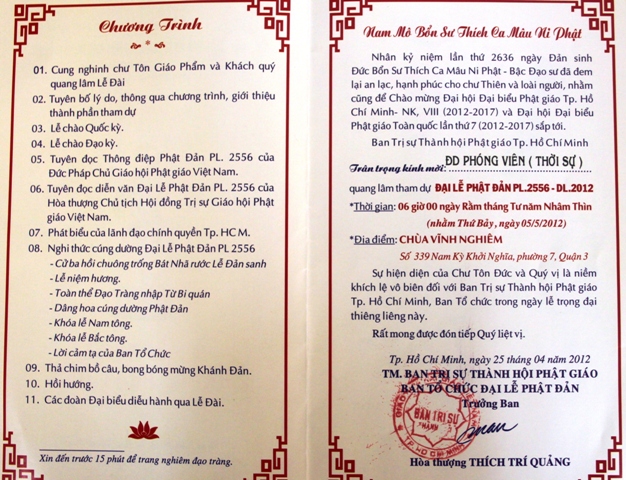 Chương Trình
01. Cung nghinh chư Tôn Giáo Phẩm và Khách quý
quang lâm Lễ Đài
02. Tuyên bố lý do, thông qua chương trình, giới thiệu
thành phần tham dự
03. Lễ chào Quốc kỳ.
04. Lễ chào Đạo kỳ.
05. Tuyên đọc Thông điệp Phật Đản PL. 2556 của
Đức Pháp Chủ Giáo hội Phật giáo Việt Nam.
06. Tuyên đọc diễn văn Đại Lễ Phật Đản PL. 2556 của
Hòa thượng Chủ tịch Hội đồng Trị sự Giáo hội Phật
giáo Việt Nam.
07. Phát biểu của lãnh đạo chính quyền Tp. HC M.
08. Nghi thức cúng dường Đại Lễ Phật Đản PL 2556
- Cử ba hồi chuông trống Bát Nhã rước Lễ Đản sanh
- Lễ niệm hương.
- Toàn thể Đạo Tràng nhập Từ Bi quán
- Dâng hoa cúng dường Phật Đản
- Khóa lễ Nam tông.
- Khóa lễ Bắc tông.
- Lời cảm tạ của Ban Tổ Chức
09. Thả chim bồ câu, bong bóng mừng Khánh Đản.
10. Hồi hướng.
11. Các đoàn Đại biểu diều hành qua Lễ Đài.
Xin đến trước 15 phút để trang nghiêm đạo tràng.
Nam Mô Bổn Sư Thích Ca Mâu Ni Phật
Nhân kỷ niệm lần thứ 2636 ngày Đản sinh
Đức Bổn Sư Thích Ca Mâu Ni Phật - Bậc Đạo sư đã đem
lại an lạc, hạnh phúc cho chư Thiên và loài người, nhằm
cũng để Chào mừng Đại hội Đại biểu Phật giáo Tp. Hồ
Chí Minh- NK, VIII (2012-2017) và Đại hội Đại biểu
Phật giáo Toàn quốc lần thứ 7 (2012-2017) sắp tới.
Ban Trị sự Thành hội Phật giáo Tp. Hồ Chí Minh
Trân trọng kính mời: ĐD PHÓNG VIÊN ( THỜI SỰ )
quang lâm tham dự ĐẠI LỄ PHẬT ĐẢN PL.2556 - DL.2012
*Thời gian: 06 giờ 00 ngày Rằm tháng Tư năm Nhâm Thìn
(nhằm Thứ Bảy, ngày 05/5/2012)
*Địa điểm: CHÙA VĨNH NGHIÊM
Số 339 Nam Kỳ Khởi Nghĩa, phường 7, Quận 3
Sự hiện diện của Chư Tôn Đức và Quý vị là niềm
khích lệ vô biên đối với Ban Trị sự Thành hội Phật giáo
Tp. Hồ Chí Minh, Ban Tổ chức trong ngày lễ trọng đại
thiêng liêng này.
Rất mong được đón tiếp Quý liệt vị.
Tp. Hồ Chí Minh, ngày 25 tháng 04 năm 2012
TM. BAN TRỊ SỰ THÀNH HỘI PHẬT GIÁO
BAN TỔ CHỨC ĐẠI LỄ PHẬT ĐẢN
Trưởng Ban
BAN TRỊ SỰ
Hòa thượng THÍCH TRÍ QUẢNG